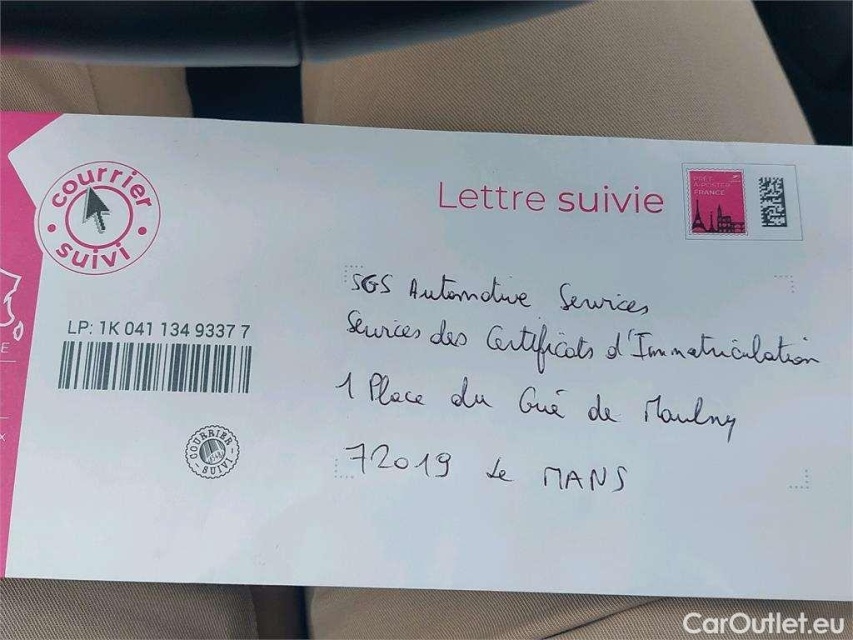 courrier
suivi
Lettre suivie
PRÊT
À POSTER
FRANCE
LP: 1K 041 134 9337 7
SGS Automotive Services
Services des Certificats d'Immatriculation
1 Place du Gué de Maulny
72019 Le MANS
COURRIER
SUIVI
E
CarOutlet.eu